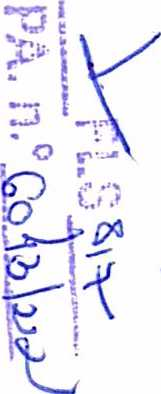 FLS 817
P.A. n.º 6043/222